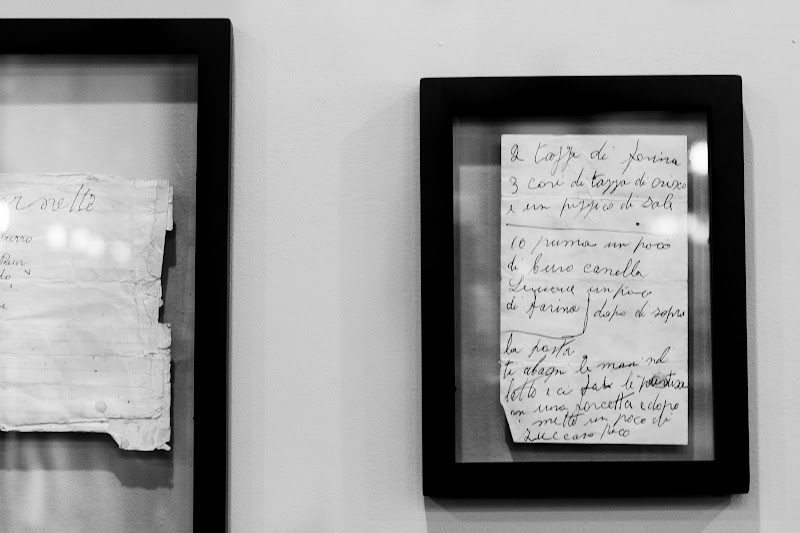 rnetti
burro
2 tazzi di farina
3 cori di tazza di crisco
e un pizzico di sale
10 puma un poco
di buro canella
un poco
di farina dopo di sopra
la pasta
ti abagni le mani nel
lotto e ci fai le
con una forcetta e dopo
metti un poco di
zuccaro poco